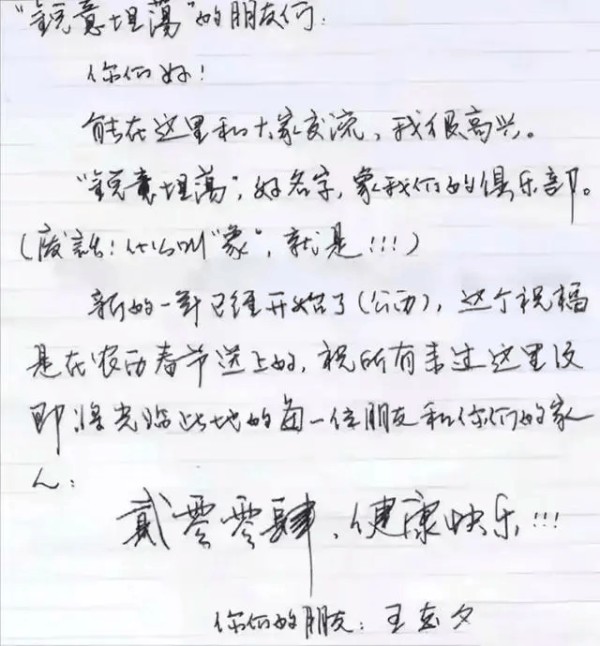 “锐意坦荡”的朋友们:
你们好!
能在这里和大家交流,我很高兴。
“锐意坦荡”,好名字,象我们的俱乐部。
(废話!什么叫“象”,就是!!!)
新的一年已经开始了(公历),这个祝福
是在农历春节送上的,祝所有来过这里没
即将光临此地的每一位朋友和你们的家
人:
贰零零肆,健康快乐!!!
你们的朋友:王志夕